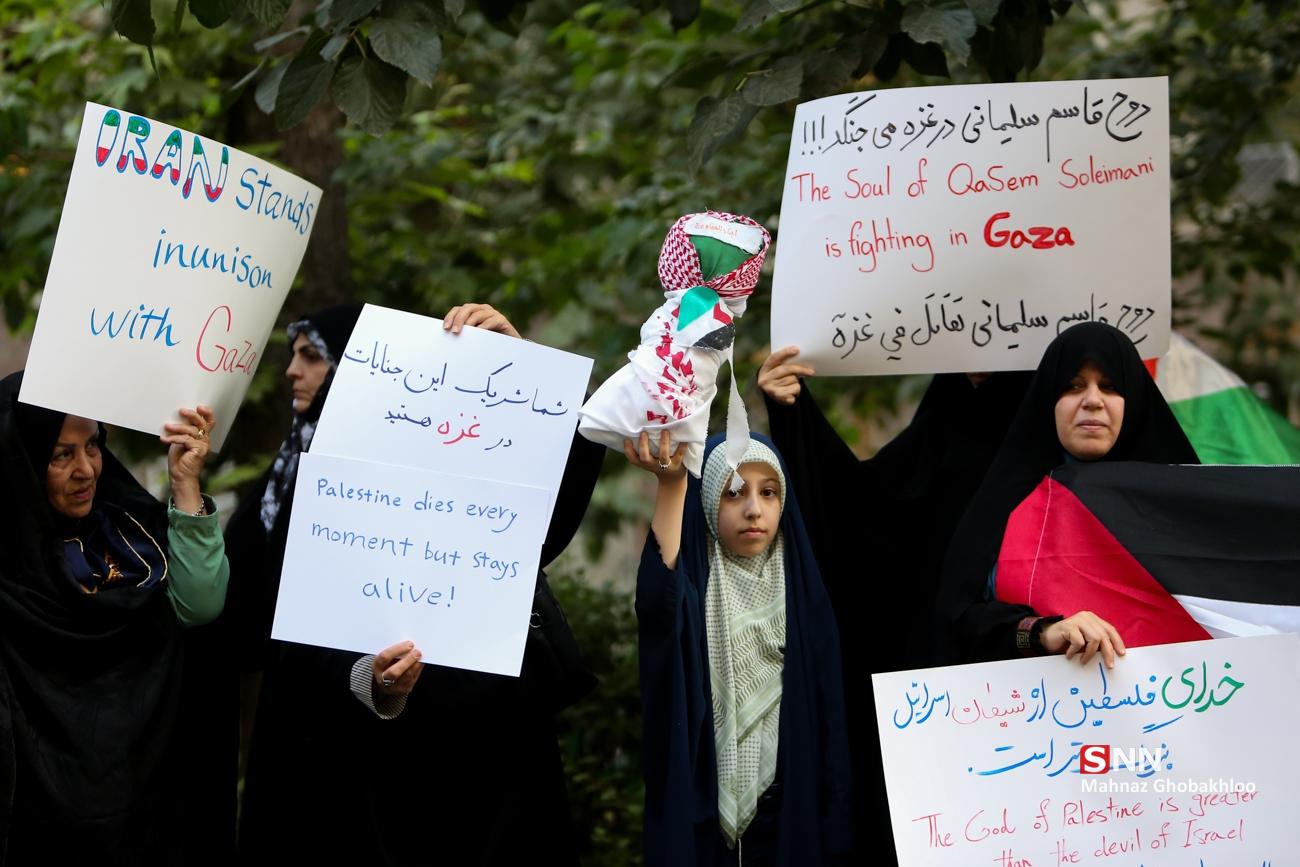 IRAN Stands
inunison
with Gaza
شما شریک این جنایات
در غزه هستید
Palestine dies every
moment but stays
alive!
روح قاسم سلیمانی در غزه می جنگد!!!
The Soul of QaSem Soleimani
is fighting in Gaza
روح قاسم سلیمانی تقاتل في غزة
خدای فلسطین از شیطان اسرائیل
بزرگتر است.
The God of Palestine is greater
than the devil of Israel
SNN
Mahnaz Ghobakhloo